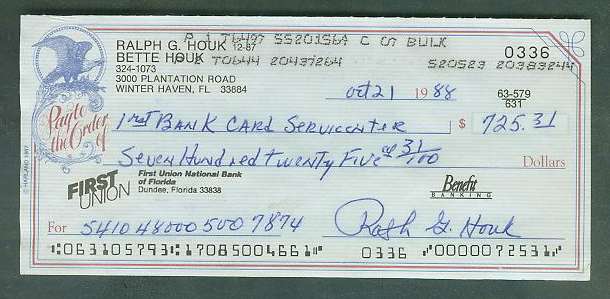 P 1 T6497 SS201564 C OT BULK
RALPH G. HOUK 12-87 0336
BETTE HOUK T0644 20437264 S20523 20383244
324-1073
3000 PLANTATION ROAD
WINTER HAVEN, FL 33884
Oct 21 1988 63-579
631
Pay to the Order of 1rst BANK CARD SERVICENTER $ 725.31
SEVEN HUNDRED TWENTY FIVE & 31/100 Dollars
FIRST UNION First Union National Bank of Florida Dundee, Florida 33838 Benefit BANKING
For 5410 48000 500 7874 Ralph G. Houk
⑆063105793⑆17085004661⑈ 0336 ⑈0000072531⑈
© HARLAND 1977